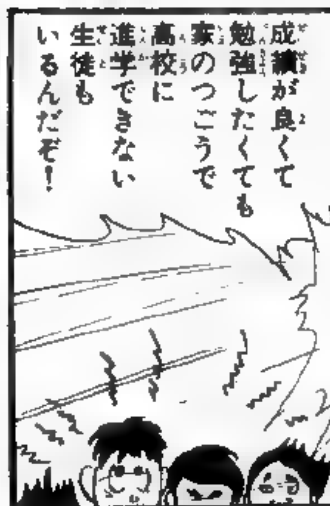 成績が良くて
勉強したくても
家のつごうで
高校に
進学できない
生徒も
いるんだぞ!